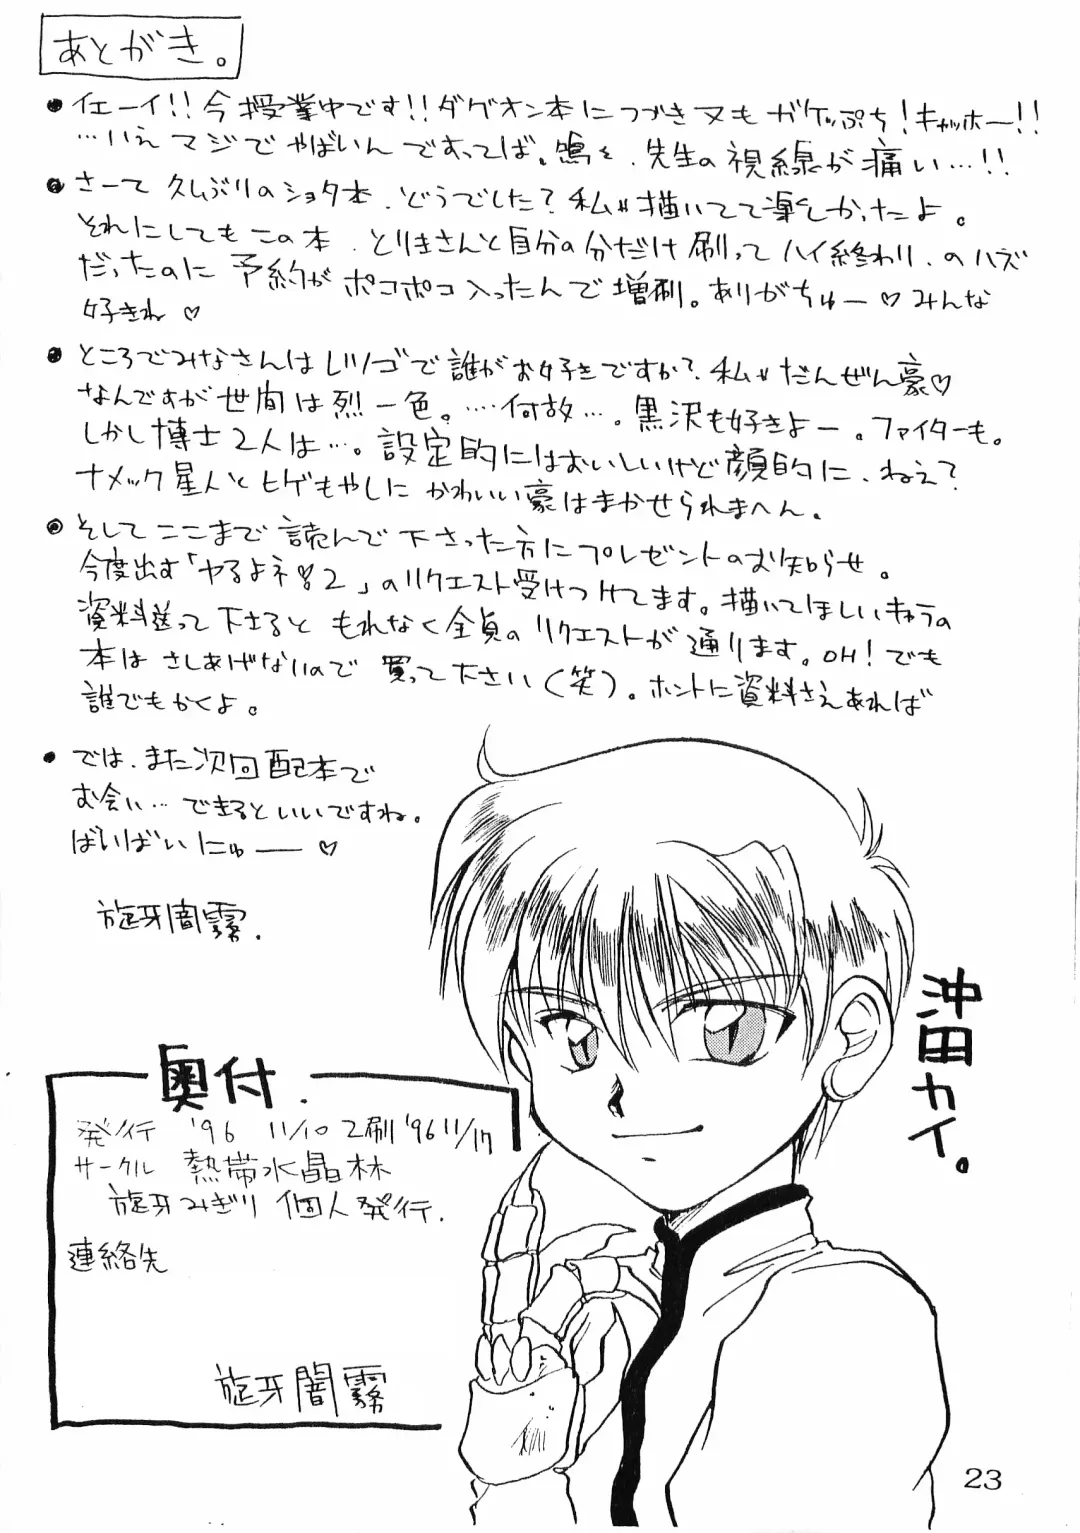 あとがき。
●イェーイ!!今授業中です!!ダグオン本につづき又もガケっぷち!キャッホー!!
…いえマジでやばいんですってば。鳴々、先生の視線が痛い…!!
●さーて久しぶりのショタ本、どうでした?私は描いてて楽しかったよ。
それにしてもこの本、とりまさんと自分の分だけ刷ってハイ終わり、のハズ
だったのに予約がポコポコ入ったんで増刷。ありがちゅー♡みんな
好きね♡
●ところでみなさんはレツゴで誰がお好きですか?私はだんぜん豪♡
なんですが世間は烈一色。…何故…。黒沢も好きよー。ファイターも。
しかし博士2人は…。設定的にはおいしいけど顔的に、ねえ?
ナメック星人とヒゲもやしにかわいい豪はまかせられまへん。
●そしてここまで読んで下さった方にプレゼントのお知らせ。
今度出す「ヤるよネ 2」のリクエスト受けつけてます。描いてほしいキャラの
資料送って下さるともれなく全員のリクエストが通ります。OH!でも
本はさしあげないので買って下さい(笑)。ホントに資料さえあれば
誰でもかくよ。
●では、また次回配本で
お会い…できるといいですね。
ばいばいにゅー♡
旋牙闇霧.
沖田カイ。
奥付.
発行 '96 11/10 2刷'96 11/17
サークル 熱帯水晶林
旋牙みぎり 個人発行.
連絡先
旋牙闇霧
23